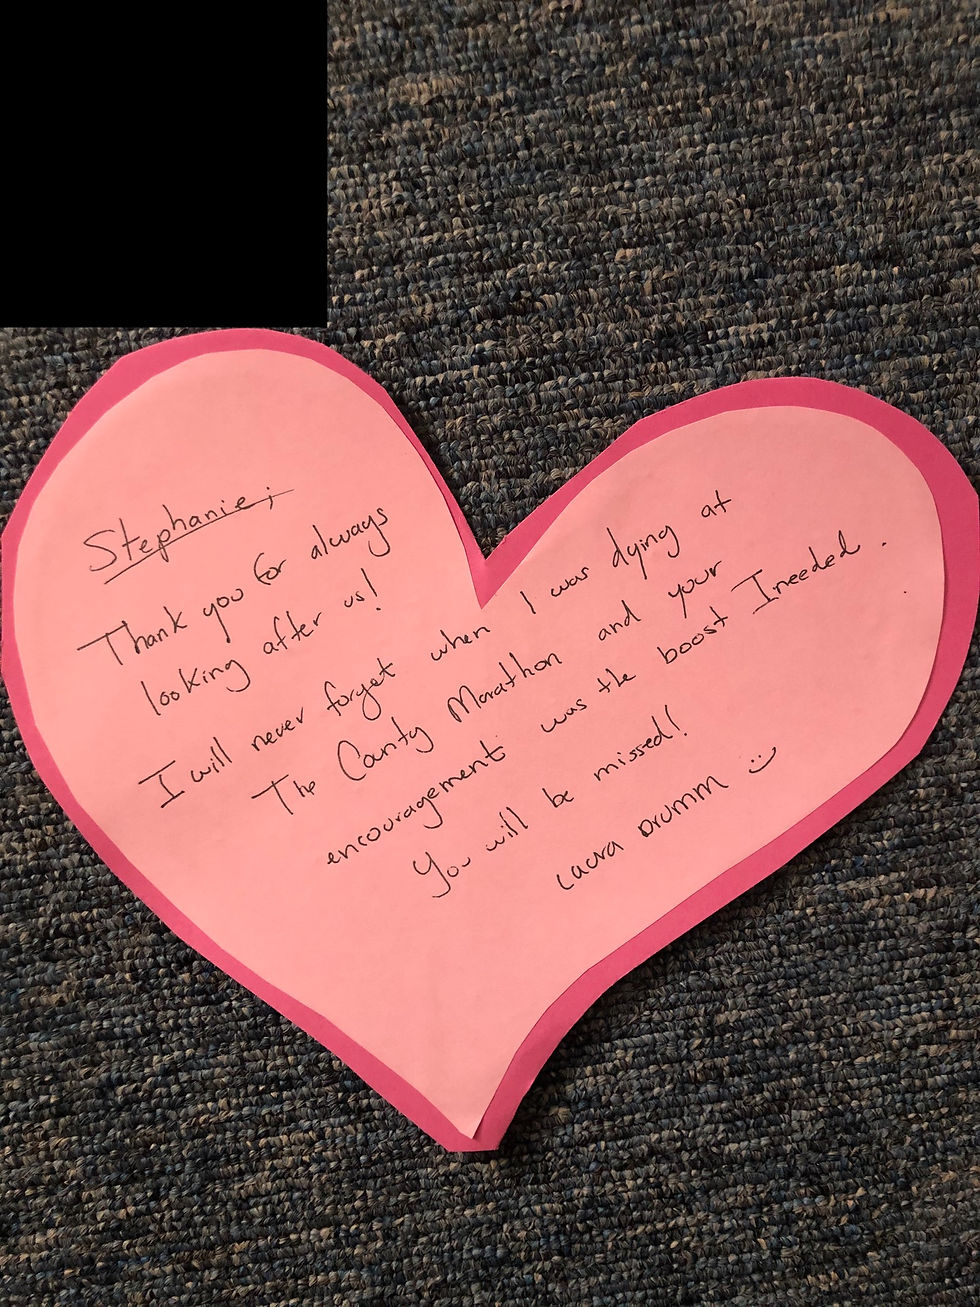 Stephanie;
Thank you for always
looking after us!
I will never forget when I was dying at
The County Marathon and your
encouragement was the boost I needed.
You will be missed!
Laura Drumm :)